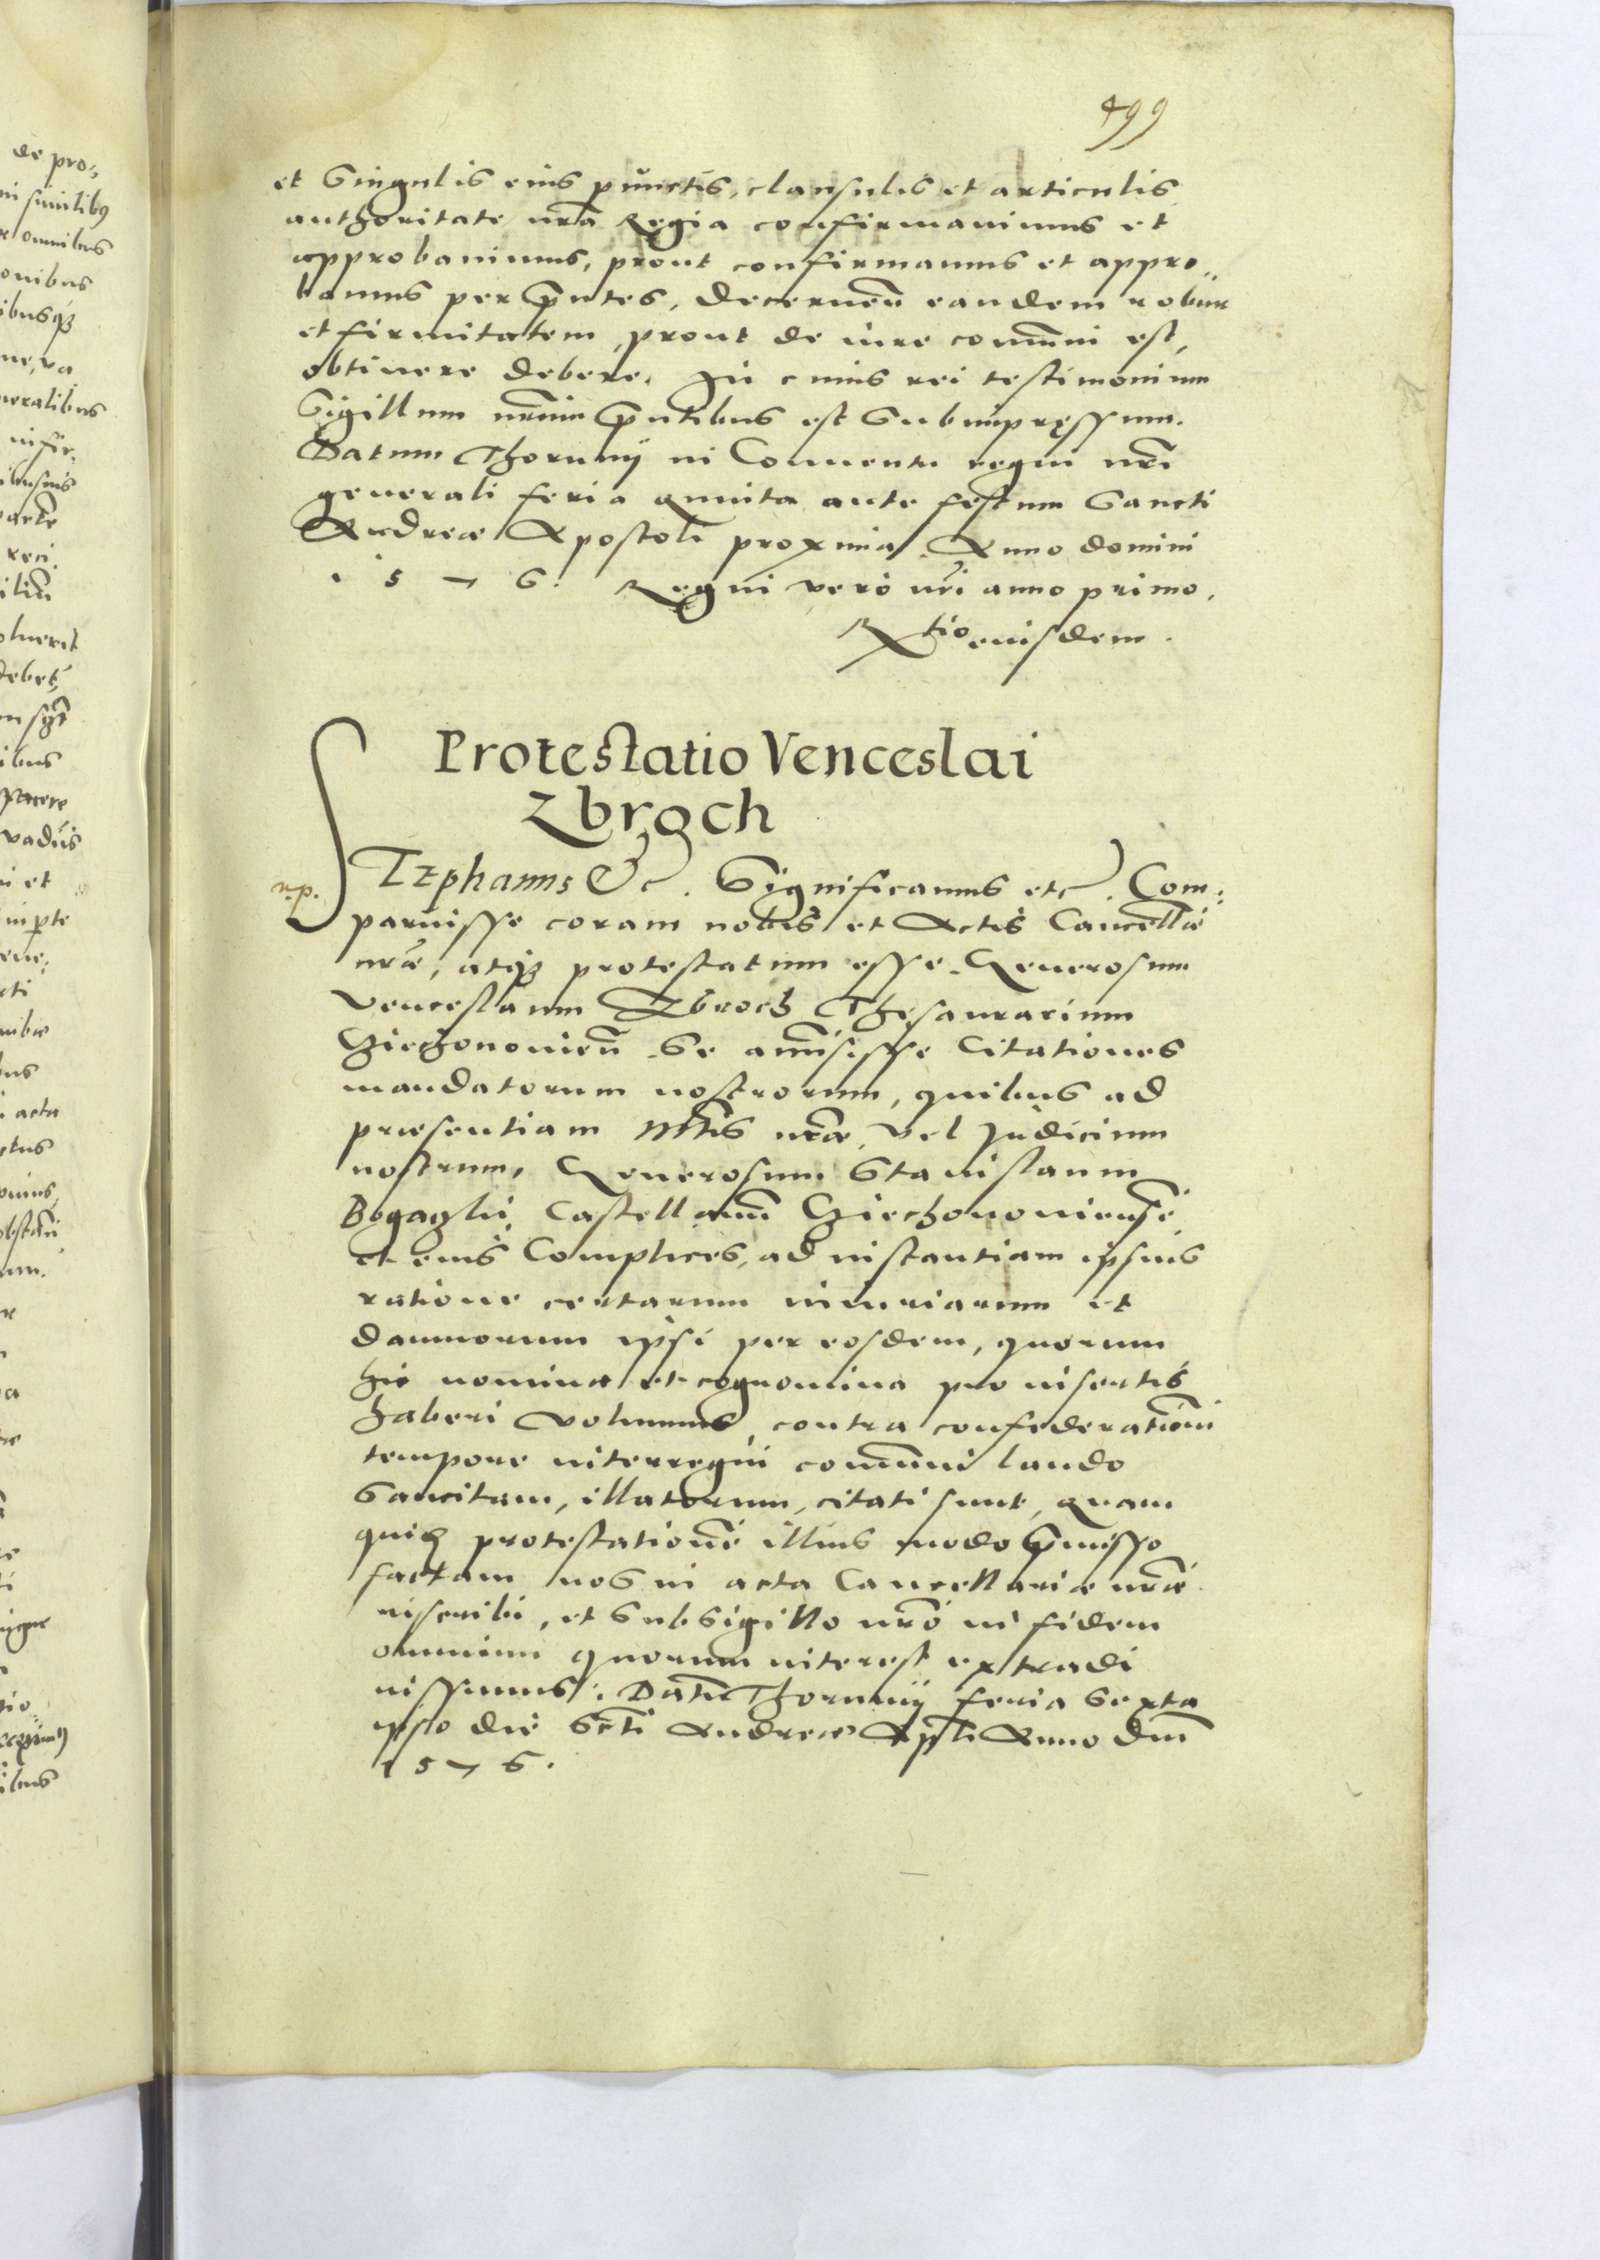 499
et Singulis eius punctis, clausulis et articulis
authoritate nr̃a Regia confirmavimus et
approbavimus, prout confirmamus et appro„
bamus per p̃ntes, decernen̄ eandem robur
et firmitatem, prout de iure com̄uni est,
obtinere debere. In cuius rei testimonium
Sigillum nr̃um p̃ntibus est Subimpręssum.
Datum Thorunij in Conventu regni nr̃i
generali feria quinta ante festum Sancti
Andreæ Apostoli proxima. Anno domini
1 5 7 6. Regni vero nr̃i anno primo.
R̃tio eiusdem.
Protestatio Venceslai
Zbroch
n.p.
STEphanus &c. Significamus etc. Com:
paruisse coram nobis et Actis Cancellæ
nr̃æ, atq₃ protestatum esse Generosum
Venceslaum Zbroch Thesaurarium
Cziechonovien̄ Se am̄isisse Citationes
mandatorum nostrorum, quibus ad
præsentiam Mttis nr̃æ vel Judicium
nostrum, Generosum Stanislaum
Castellanum̄ Cziechonoviensē
et eius Complices, ad instantiam ipsius
ratione certarum iniuriarum et
damnorum ipsi per eosdem, quorum
hic nomina et cognomina pro insertis
haberi volumus, contra confederationē
tempore interregni com̄uni laudo
Sancitam, illatorum, citati sunt, quam
quidē protestationē illius modo p̃misso
factam nos in acta Cancellariæ nr̃æ
inscribi, et Sub Sigillo nr̃o in fidem
omnium quorum interest extradi
iussimus. Datū Thorunij feria Sexta
ipso die Scti Andreæ Apl̃i Anno Dn̄i
1 5 7 6.